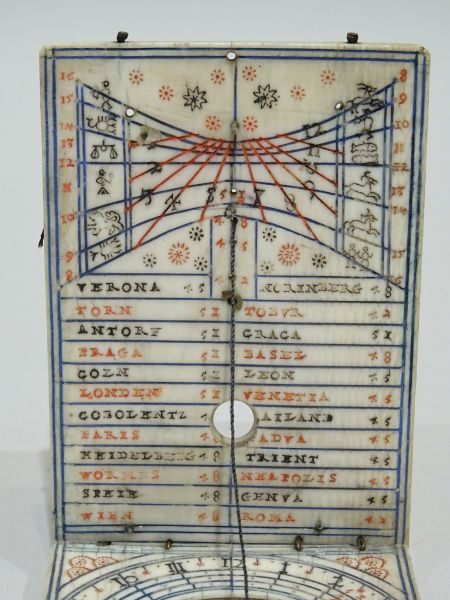 16 8
15 9
14 10
13 11
12 12
11 13
10 14
9 15
8 16
VERONA 45 NORINBERG 48
TORN 51 TOBVR 42
ANTORF 51 GRACA 51
PRAGA 51 BASEL 48
COLN 51 LEON 45
LONDEN 51 VENETIA 45
COBOLENTZ AILAND 45
PARIS 48 ADVA 45
HEIDELBERG 48 TRIENT 45
WORMES 48 NEAPOLIS 45
SPEIE 48 GENVA 45
WIEN 48 ROMA 42
12 1